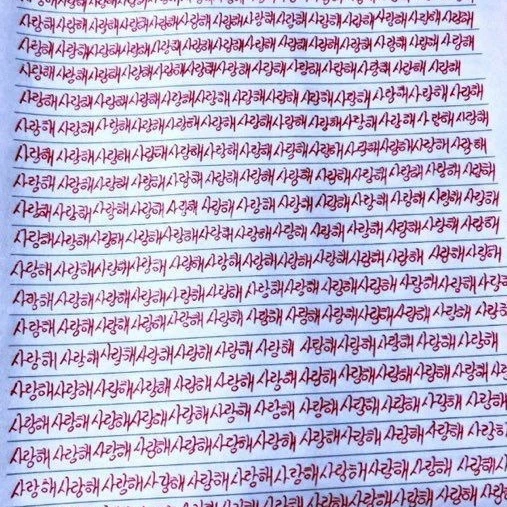 사랑해사랑해사랑해사랑해사랑해사랑해사랑해사랑해사랑해사랑해 사랑해 사랑해
사랑해 사랑해사랑해사랑해사랑해 사랑해사랑해 사랑해 사랑해 사랑해 사랑해 사랑해 사랑해
사랑해 사랑해사랑해 사랑해사랑해사랑해사랑해사랑해사랑해 사랑해 사랑해 사랑해 사랑해
사랑해 사랑해사랑해사랑해사랑해사랑해사랑해 사랑해 사랑해 사랑해 사랑해 사랑해
사랑해 사랑해 사랑해 사랑해사랑해사랑해 사랑해사랑해 사랑해사랑해 사랑해사랑해 사랑해
사랑해 사랑해 사랑해사랑해 사랑해 사랑해 사랑해사랑해 사랑해사랑해 사랑해 사랑해 사랑해
사랑해 사랑해 사랑해 사랑해사랑해사랑해사랑해 사랑해사랑해 사랑해사랑해사랑해 사랑해
사랑해 사랑해사랑해 사랑해사랑해사랑해 사랑해 사랑해 사랑해 사랑해 사랑해 사랑해 사랑해
사랑해사랑해사랑해 사랑해 사랑해 사랑해 사랑해 사랑해 사랑해사랑해 사랑해 사랑해 사랑해
사랑해사랑해사랑해 사랑해사랑해사랑해 사랑해사랑해 사랑해 사랑해 사랑해사랑해 사랑해
사랑해 사랑해사랑해사랑해 사랑해사랑해 사랑해사랑해 사랑해사랑해 사랑해 사랑해사랑해
사랑해 사랑해사랑해사랑해사랑해 사랑해 사랑해사랑해 사랑해사랑해 사랑해 사랑해사랑해
사랑해 사랑해사랑해 사랑해사랑해 사랑해 사랑해 사랑해 사랑해사랑해 사랑해 사랑해
사랑해 사랑해 사랑해사랑해사랑해 사랑해 사랑해 사랑해 사랑해 사랑해 사랑해 사랑해
사랑해사랑해사랑해사랑해 사랑해 사랑해 사랑해 사랑해사랑해사랑해 사랑해 사랑해
사랑해 사랑해 사랑해사랑해사랑해사랑해 사랑해 사랑해 사랑해사랑해 사랑해 사랑해
사랑해 사랑해 사랑해 사랑해사랑해사랑해사랑해 사랑해 사랑해 사랑해 사랑해 사랑해
사랑해사랑해 사랑해사랑해 사랑해 사랑해 사랑해 사랑해사랑해 사랑해 사랑해
사랑해 사랑해 사랑해 사랑해사랑해사랑해 사랑해 사랑해